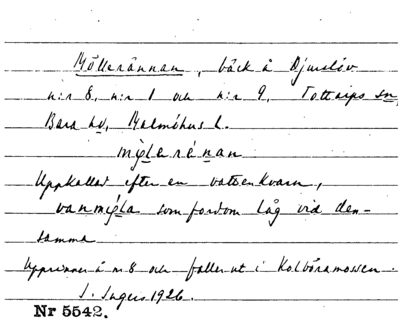 Möllerännan, bäck å Djurslöv
n:r 8, n:r 1 och n:r 9, Tottarps sn,
Bara hd, Malmöhus l.
Uppkallad efter en vattenkvarn,
som fordom låg vid den-
samma
Upprinner å nr 8 och faller ut i Kolböramossen.
J. Ingers 1926.
Nr 5542.